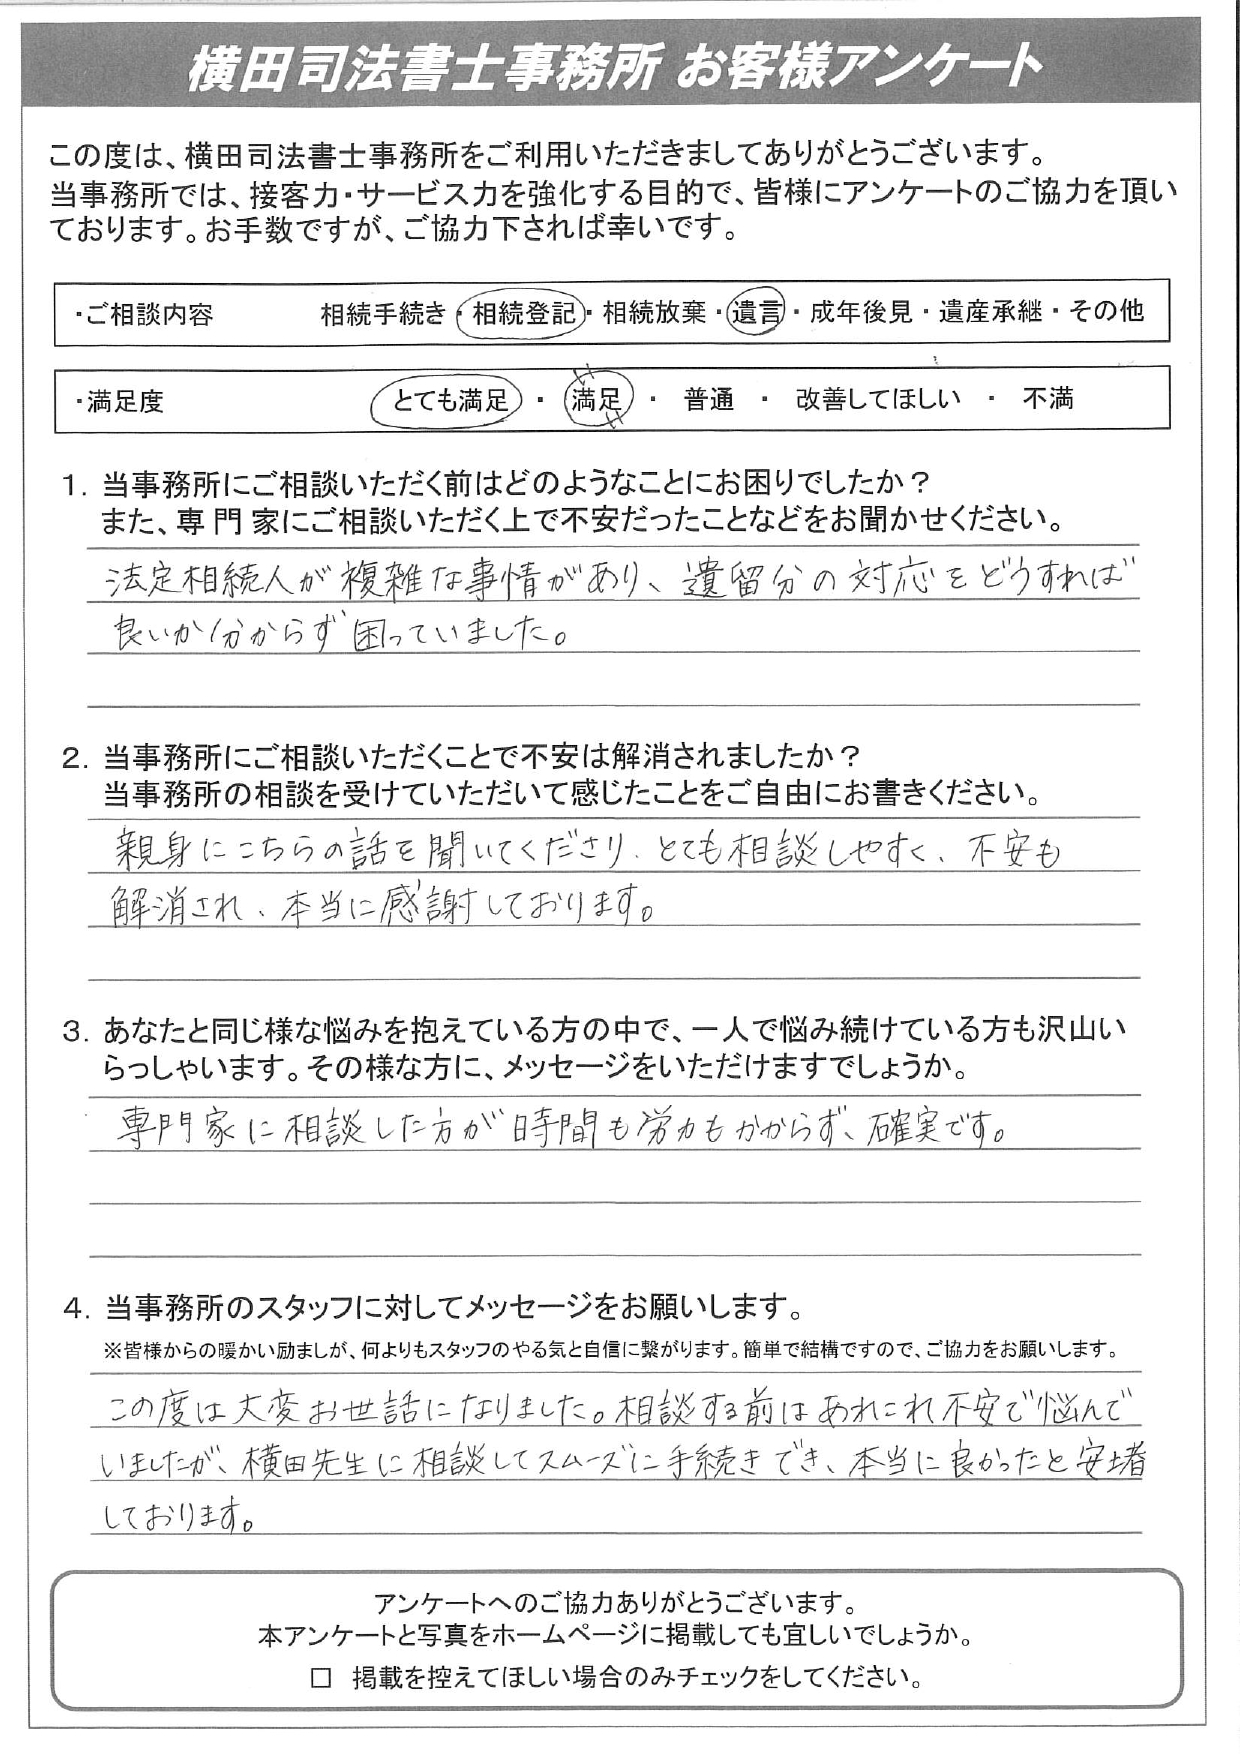 横田司法書士事務所 お客様アンケート
この度は、横田司法書士事務所をご利用いただきましてありがとうございます。
当事務所では、接客力・サービス力を強化する目的で、皆様にアンケートのご協力を頂い
ております。お手数ですが、ご協力下されば幸いです。
・ご相談内容 相続手続き・相続登記・相続放棄・遺言・成年後見・遺産承継・その他
・満足度 とても満足・満足・普通・改善してほしい・不満
1. 当事務所にご相談いただく前はどのようなことにお困りでしたか？
また、専門家にご相談いただく上で不安だったことなどをお聞かせください。
法定相続人が複雑な事情があり、遺留分の対応をどうすれば
良いか分からず困っていました。
2. 当事務所にご相談いただくことで不安は解消されましたか？
当事務所の相談を受けていただいて感じたことをご自由にお書きください。
親身にこちらの話を聞いてくださり、とても相談しやすく、不安も
解消され、本当に感謝しております。
3. あなたと同じ様な悩みを抱えている方の中で、一人で悩み続けている方も沢山い
らっしゃいます。その様な方に、メッセージをいただけますでしょうか。
専門家に相談した方が時間も労力もかからず、確実です。
4. 当事務所のスタッフに対してメッセージをお願いします。
※皆様からの暖かい励ましが、何よりもスタッフのやる気と自信に繋がります。簡単で結構ですので、ご協力をお願いします。
この度は大変お世話になりました。相談する前はあれこれ不安で悩んで
いましたが、横田先生に相談してスムーズに手続きでき、本当に良かったと安堵
しております。
アンケートへのご協力ありがとうございます。
本アンケートと写真をホームページに掲載しても宜しいでしょうか。
□ 掲載を控えてほしい場合のみチェックをしてください。